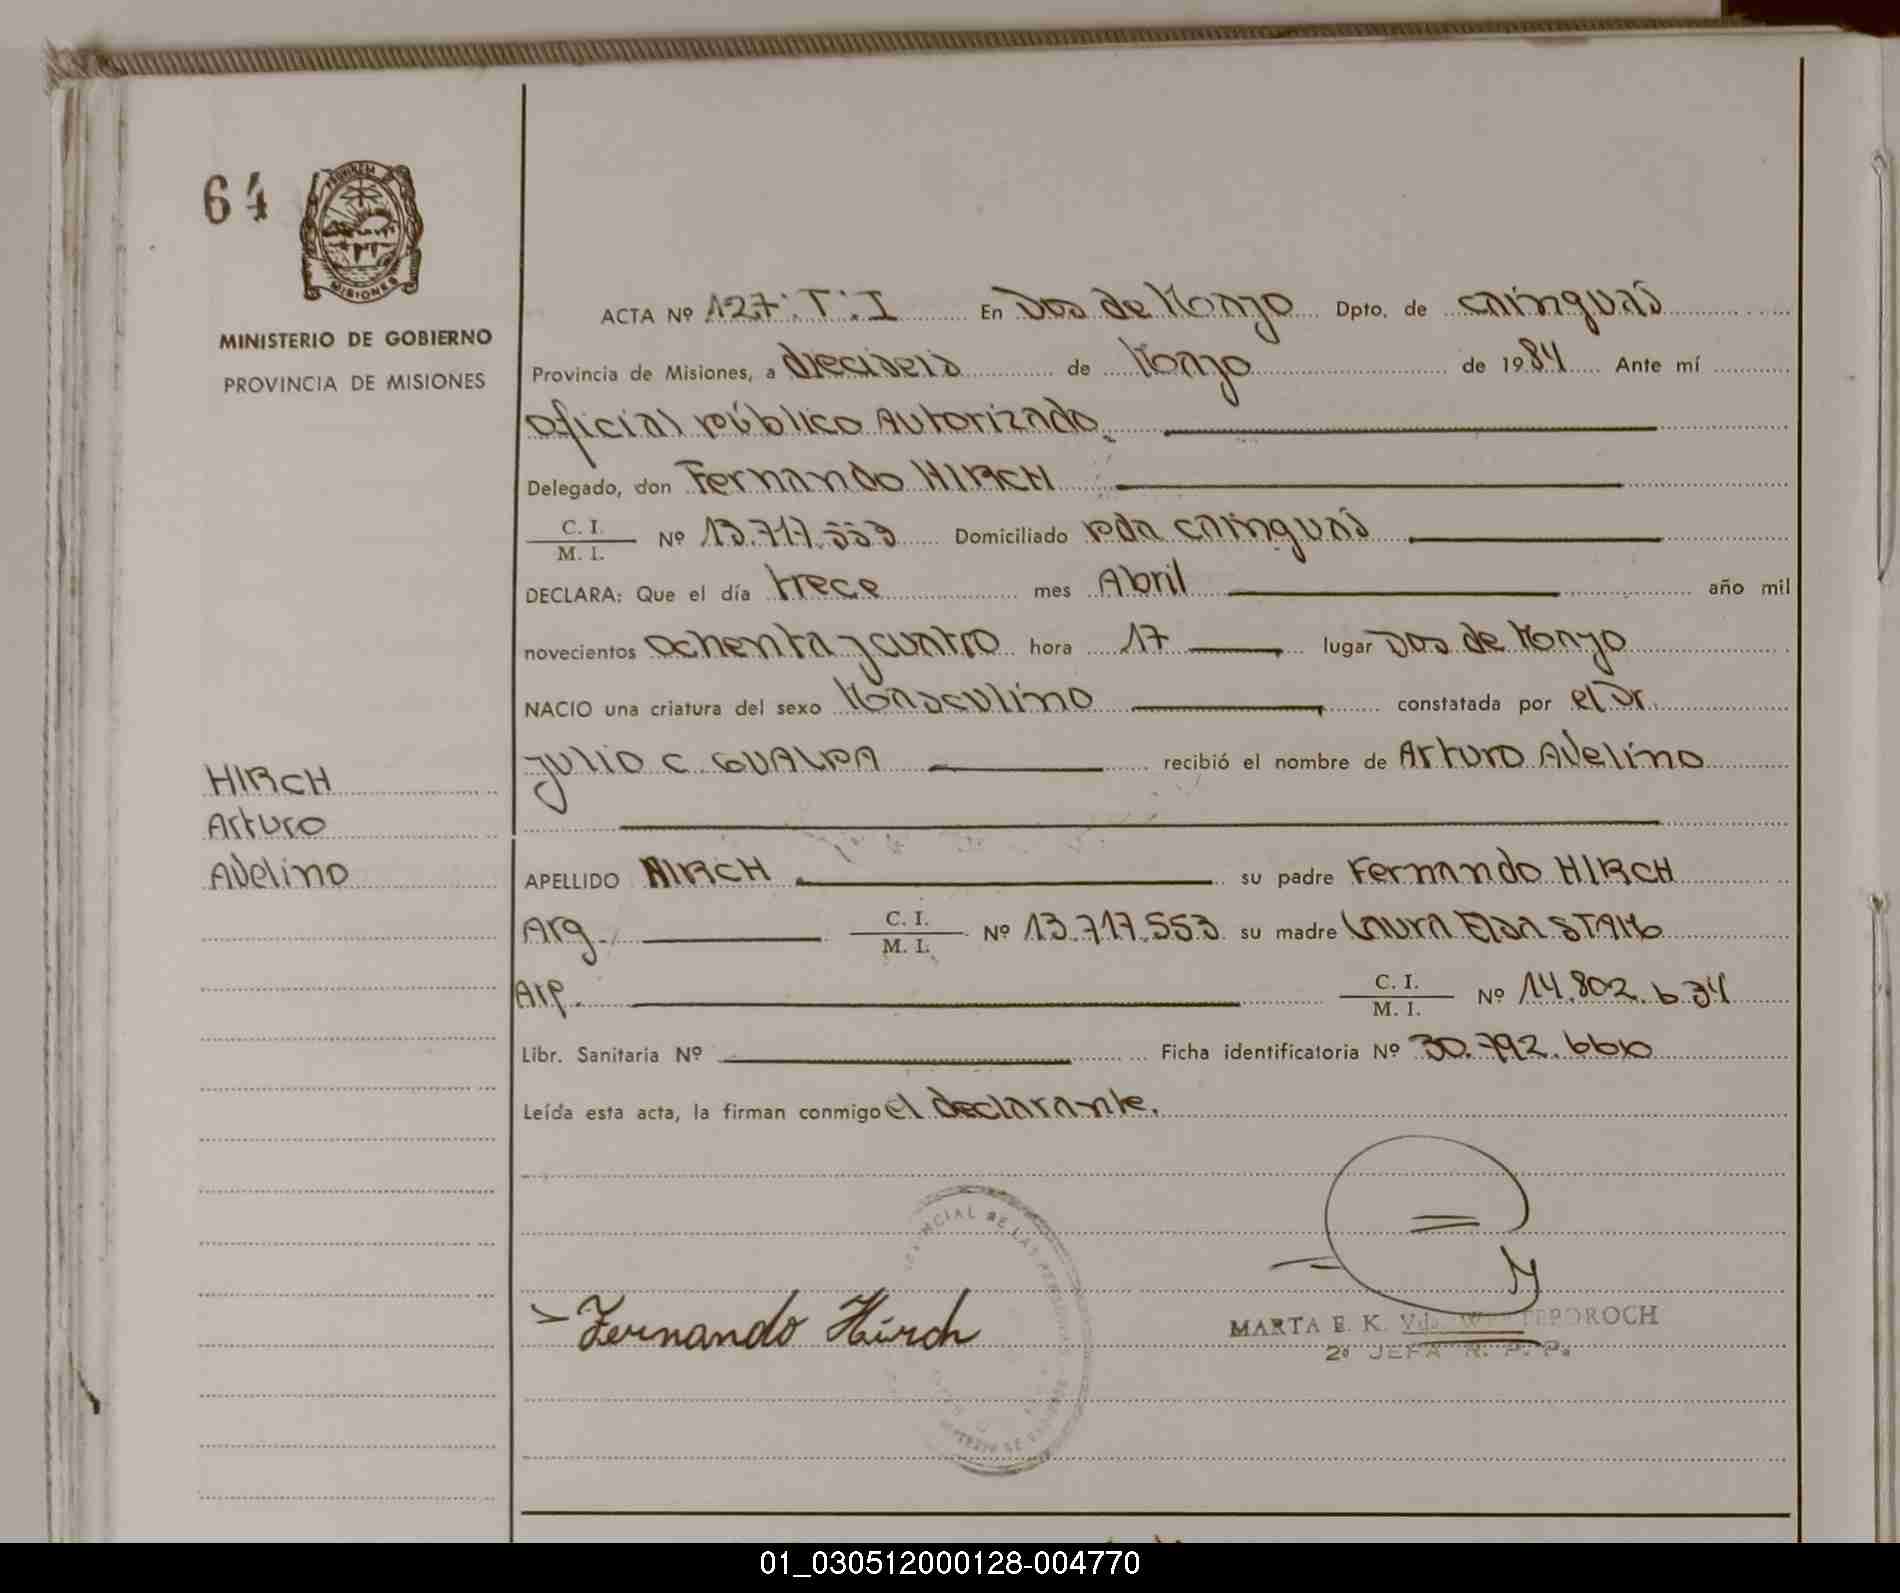 64
PROVINCIA
MISIONES
MINISTERIO DE GOBIERNO
PROVINCIA DE MISIONES
ACTA Nº 127: T: I En Dos de Mayo Dpto. de Cainguás
Provincia de Misiones, a dieciseis de Mayo de 1984 Ante mí
Oficial público Autorizado
Delegado, don Fernando HIRCH
C. I.
M. I. Nº 13.717.553 Domiciliado Pda Cainguás
DECLARA: Que el día trece mes Abril año mil
novecientos ochenta y cuatro hora 17 lugar Dos de Mayo
NACIO una criatura del sexo Masculino constatada por el Dr.
Julio C. GUALPA recibió el nombre de Arturo Avelino
HIRCH
Arturo
Avelino
APELLIDO HIRCH su padre Fernando HIRCH
Arg. C. I.
M. I. Nº 13.717.553 su madre Laura Elsa
C. I.
M. I. Nº 14.802.634
Libr. Sanitaria Nº Ficha identificatoria Nº 30.792.660
Leída esta acta, la firman conmigo el declarante.
Fernando Hirch
MARTA E. K. Vd.
2º JEFA R. P. P.
01_030512000128-004770